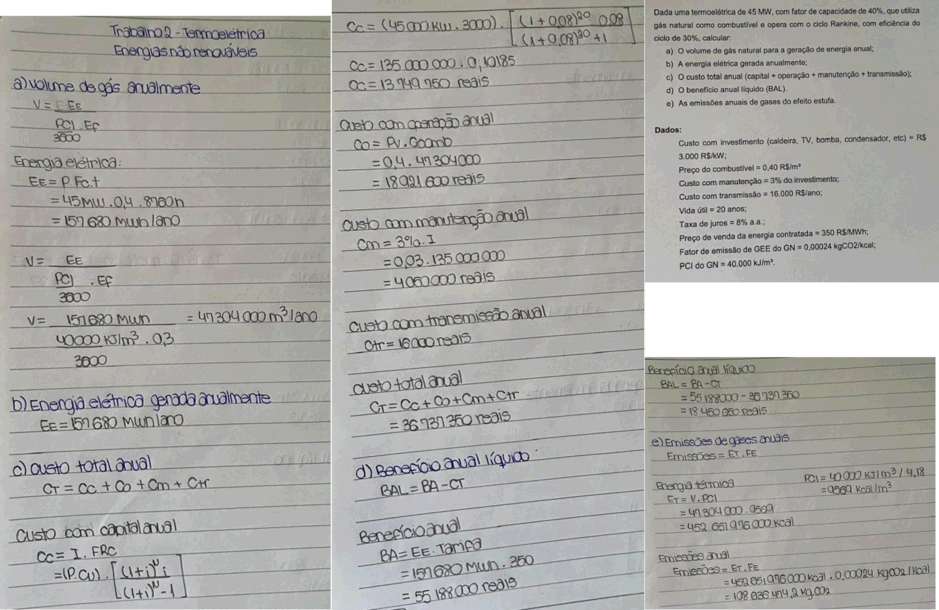 Trabalho 2 - Termoelétrica
Energias não renováveis
a) Volume de gás anualmente
V = EE
PCI . Ef
3600
Energia elétrica:
EE = P. Fc. t
= 45 MW . 0,4 . 8760h
= 157 680 MWh/ano
V = EE
PCI . EF
3600
V = 157 680 MWh = 47 304 000 m³/ano
40000 KJ/m³ . 0,3
3600
b) Energia elétrica gerada anualmente
EE = 157 680 MWh/ano
c) Custo total anual
CT = Cc + Co + Cm + Ctr
Custo com capital anual
CC = I . FRC
= (P. Cu) . [(1+i)ᶹ i
(1+i)ᶹ - 1]
CC = (45 000 KW . 3000) . [(1 + 0,08)²⁰ 0,08
(1 + 0,08)²⁰ + 1]
CC = 135 000 000 . 0,10185
CC = 13 749 750 reais
Custo com operação anual
CO = Pv . Ccomb
= 0,4 . 47 304 000
= 18 921 600 reais
Custo com manutenção anual
Cm = 3% . I
= 0,03 . 135 000 000
= 4 050 000 reais
Custo com transmissão anual
Ctr = 16 000 reais
Custo total anual
CT = Cc + Co + Cm + Ctr
= 36 737 350 reais
d) Benefício anual líquido
BAL = BA - CT
Benefício anual
BA = EE . Tarifa
= 157 680 MWh . 350
= 55 188 000 reais
Dada uma termoelétrica de 45 MW, com fator de capacidade de 40%, que utiliza
gás natural como combustível e opera com o ciclo Rankine, com eficiência do
ciclo de 30%, calcular:
a) O volume de gás natural para a geração de energia anual;
b) A energia elétrica gerada anualmente;
c) O custo total anual (capital + operação + manutenção + transmissão);
d) O benefício anual líquido (BAL).
e) As emissões anuais de gases do efeito estufa.
Dados:
Custo com investimento (caldeira, TV, bomba, condensador, etc) = R$
3.000 R$/kW;
Preço do combustível = 0,40 R$/m³
Custo com manutenção = 3% do investimento;
Custo com transmissão = 16.000 R$/ano;
Vida útil = 20 anos;
Taxa de juros = 8% a.a.;
Preço de venda da energia contratada = 350 R$/MWh;
Fator de emissão de GEE do GN = 0,00024 kgCO2/kcal;
PCI do GN = 40.000 kJ/m³.
Benefício anual líquido
BAL = BA - CT
= 55 188 000 - 36 737 350
= 18 450 650 reais
e) Emissões de gases anuais
Emissões = ET . FE
Energia térmica PCI = 40 000 KJ/m³ / 4,18
ET = V. PCI = 9569 Kcal/m³
= 47 304 000 . 9569
= 452 651 976 000 Kcal
Emissões anual
Emissões = ET . FE
= 452 651 976 000 Kcal . 0,00024 KgCO2/Kcal
= 108 636 474,2 Kg CO2